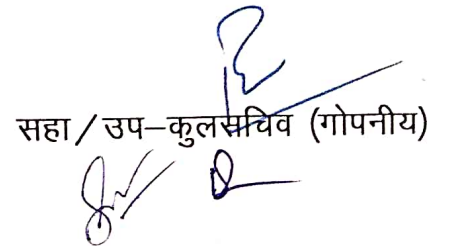 सहा/उप-कुलसचिव (गोपनीय)